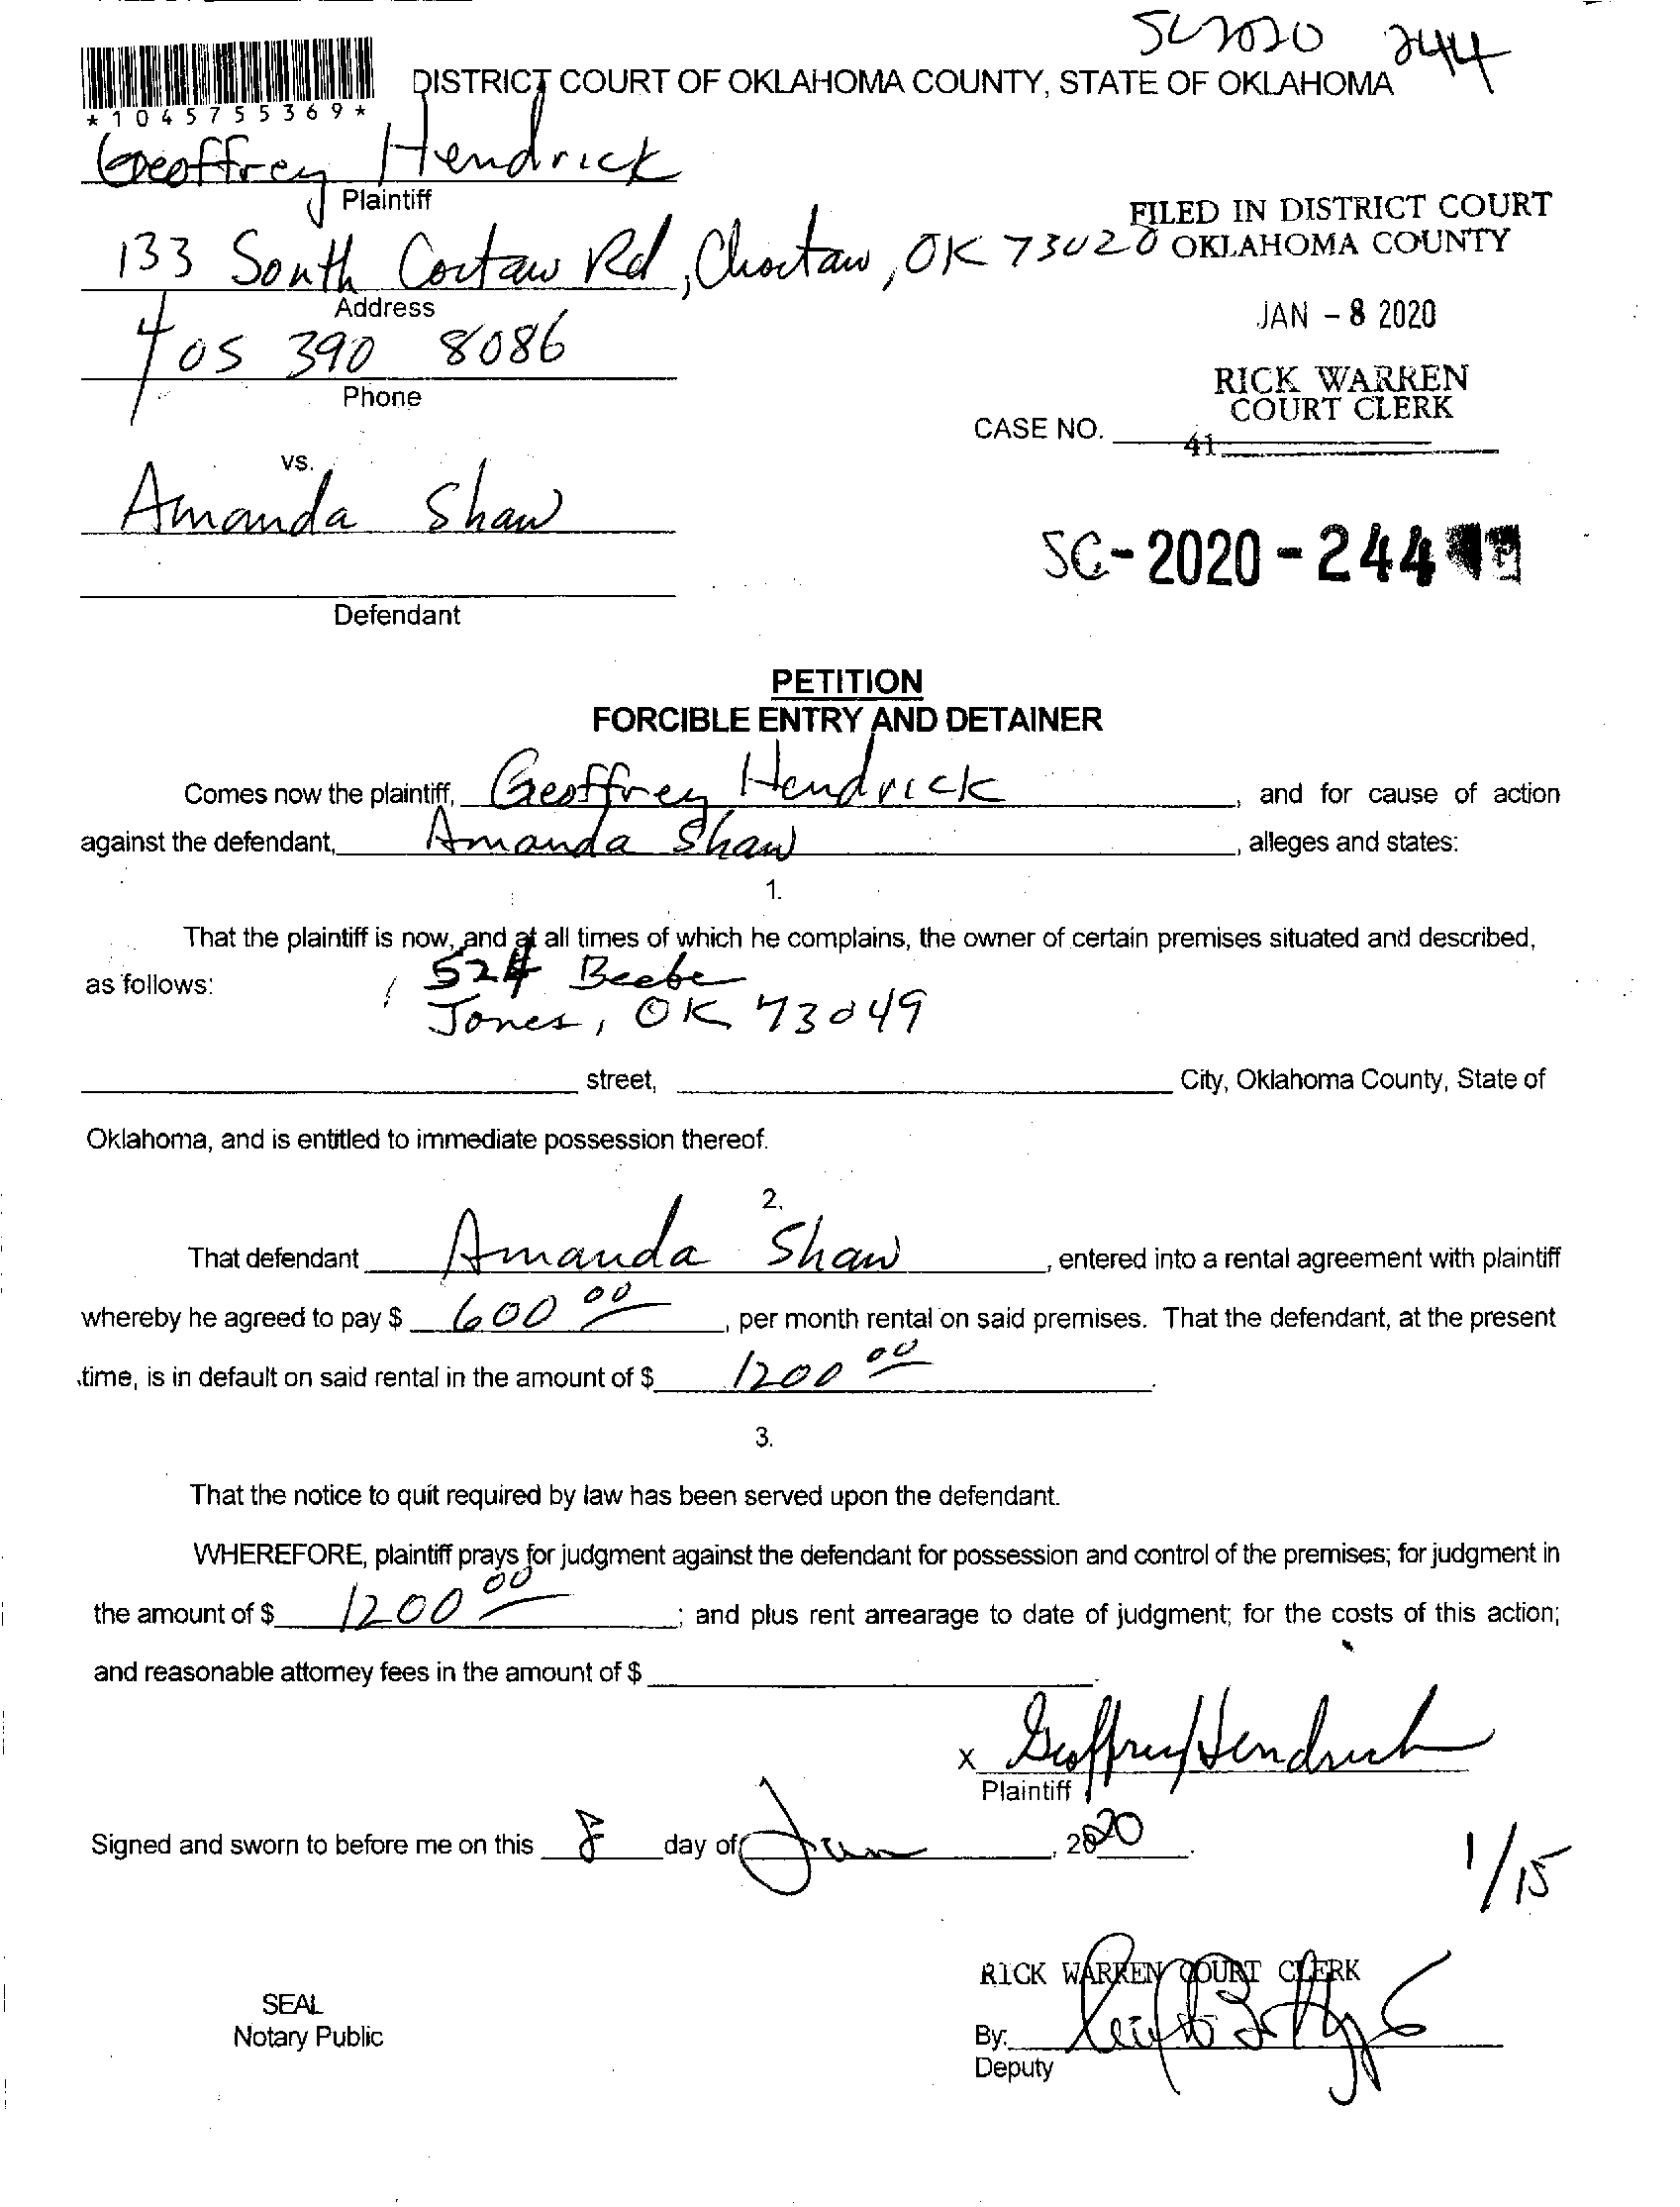 SC2020 244
*1045755369*
DISTRICT COURT OF OKLAHOMA COUNTY, STATE OF OKLAHOMA
Geoffrey Hendrick
Plaintiff
FILED IN DISTRICT COURT
OKLAHOMA COUNTY
133 South Coctaw Rd, Choctaw, OK 73020
Address
JAN - 8 2020
405 390 8086
Phone
RICK WARREN
COURT CLERK
CASE NO.
41
vs.
Amanda Shaw
SC-2020-244
Defendant
PETITION
FORCIBLE ENTRY AND DETAINER
Comes now the plaintiff, Geoffrey Hendrick, and for cause of action
against the defendant, Amanda Shaw, alleges and states:
1.
That the plaintiff is now, and at all times of which he complains, the owner of certain premises situated and described,
as follows: 524 Beebe
Jones, OK 73049
street, City, Oklahoma County, State of
Oklahoma, and is entitled to immediate possession thereof.
2.
That defendant Amanda Shaw, entered into a rental agreement with plaintiff
whereby he agreed to pay $ 600 00, per month rental on said premises. That the defendant, at the present
time, is in default on said rental in the amount of $ 1200 00.
3.
That the notice to quit required by law has been served upon the defendant.
WHEREFORE, plaintiff prays for judgment against the defendant for possession and control of the premises; for judgment in
the amount of $ 1200 00; and plus rent arrearage to date of judgment; for the costs of this action;
and reasonable attorney fees in the amount of $ .
x Geoffrey Hendrick
Plaintiff
Signed and sworn to before me on this 8 day of Jan, 2020.
1/15
RICK WARREN COURT CLERK
SEAL
Notary Public
By:
Deputy